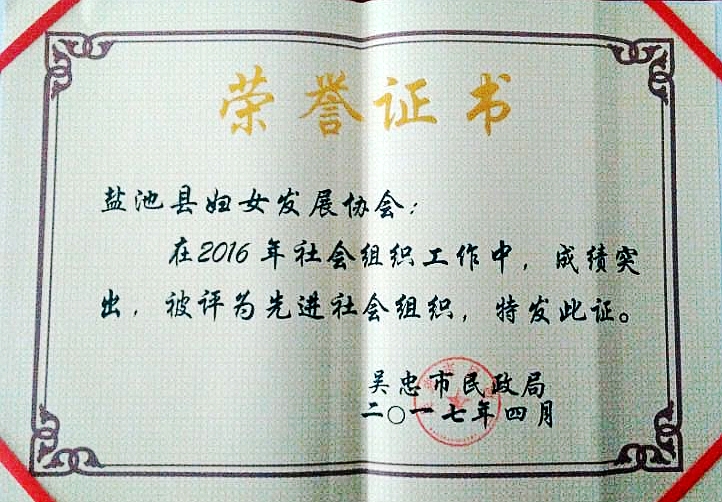 荣誉证书
盐池县妇女发展协会：
在2016年社会组织工作中，成绩突
出，被评为先进社会组织，特发此证。
吴忠市民政局
二〇一七年四月